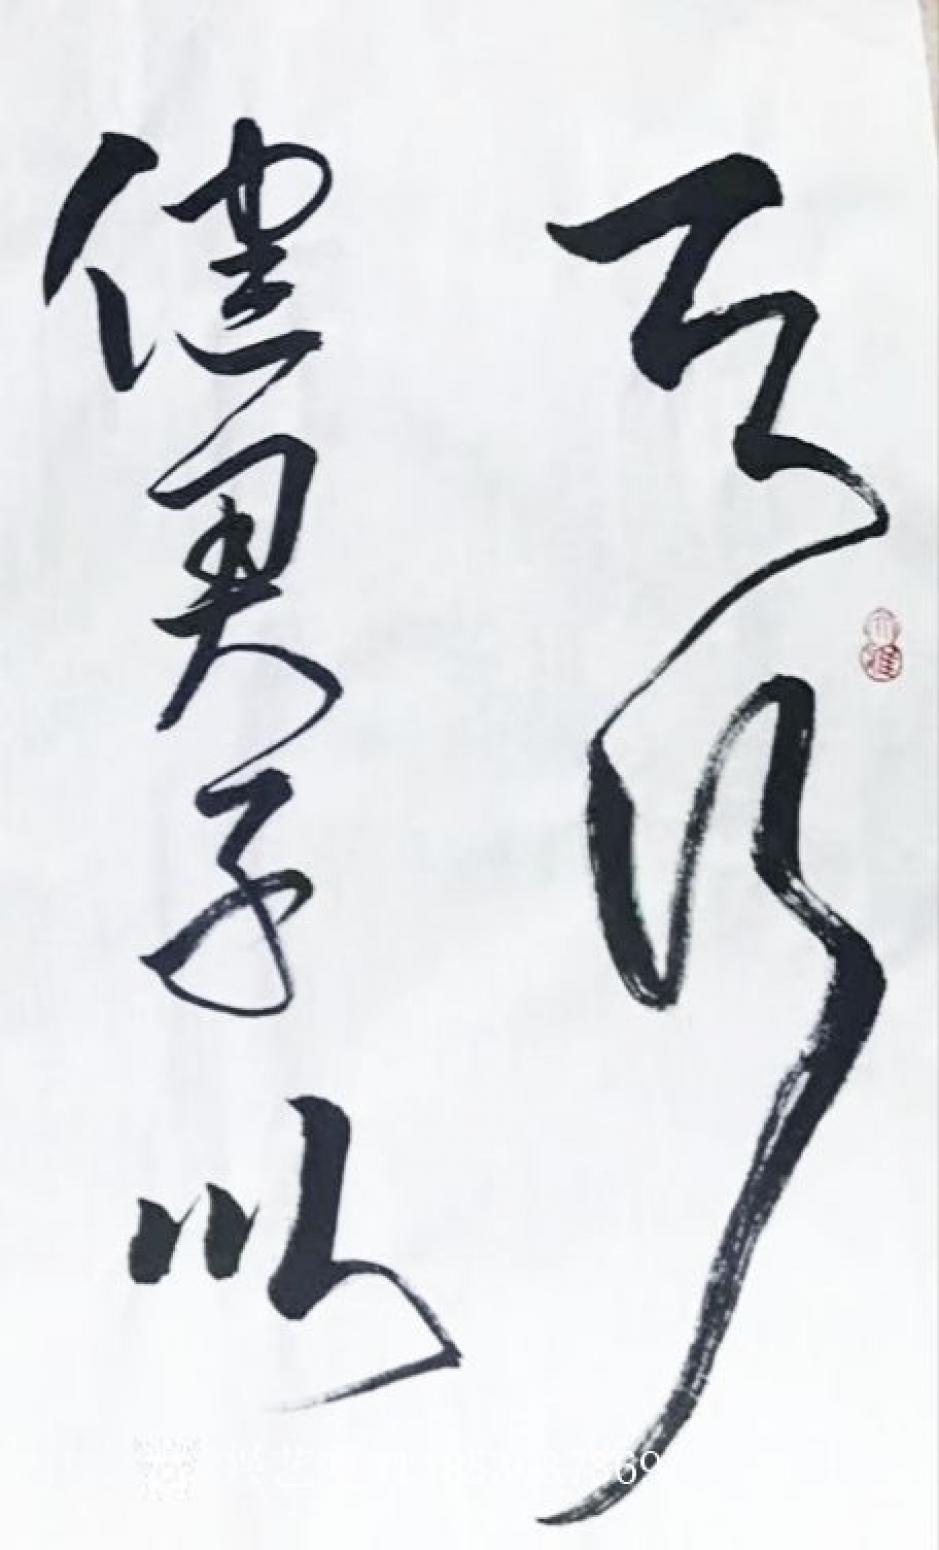 天行
健君子以